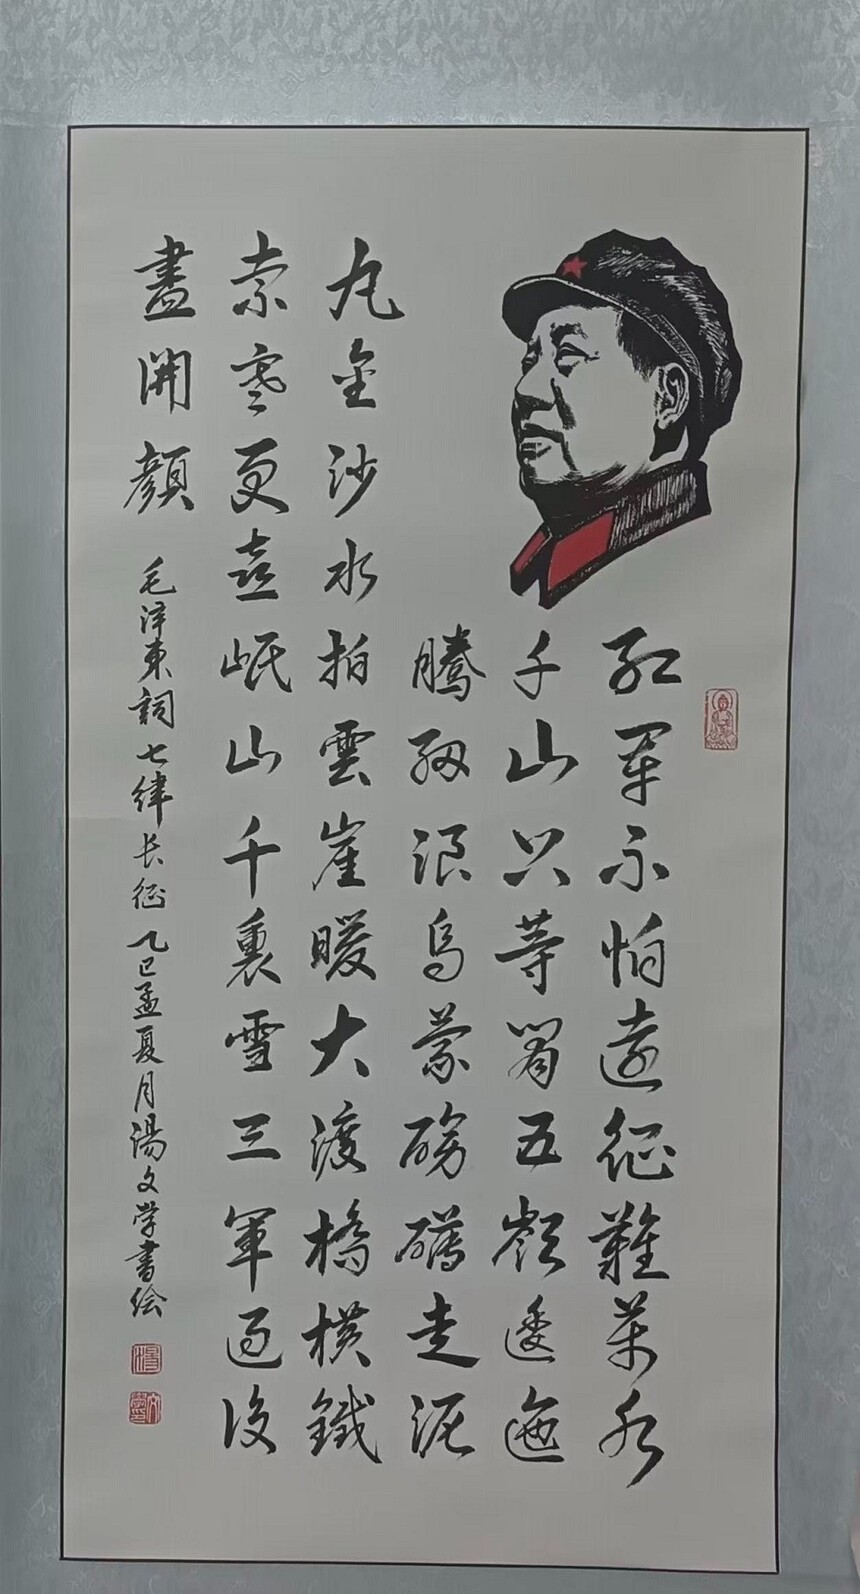 紅軍不怕遠征難萬水
千山只等閑五嶺逶迤
騰細浪烏蒙磅礴走泥
丸金沙水拍雲崖暖大渡橋横鐵
索寒更喜岷山千裏雪三軍過後
盡開顏
毛泽东詞七律长征 乙巳孟夏月湯文学書绘